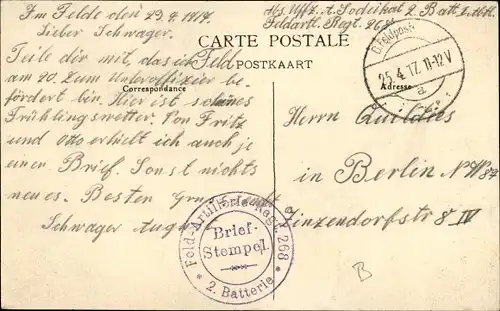 Im Felde den 23.4.1917.
Abs. Uffz. A. Sodeikat 2. Batt.
Feldartl. Regt. 268
Lieber Schwager.
CARTE POSTALE
POSTKAART
Teile dir mit, daß ich
am 20. zum Unteroffizier be-
Correspondance
fördert bin. Hier ist schönes
Frühlingswetter. Von Fritz
und Otto erhielt ich auch je
einen Brief. Sonst nichts
neues. Besten Gruß
Schwager August
D. Feldpost
25.4.17. 11-12V
d
Adresse
Herrn Quildies
in Berlin N.W. 87
Zinzendorfstr. 8 IV
Feld-Artillerie-Regt. 268
Brief-
Stempel
* 2. Batterie *
B